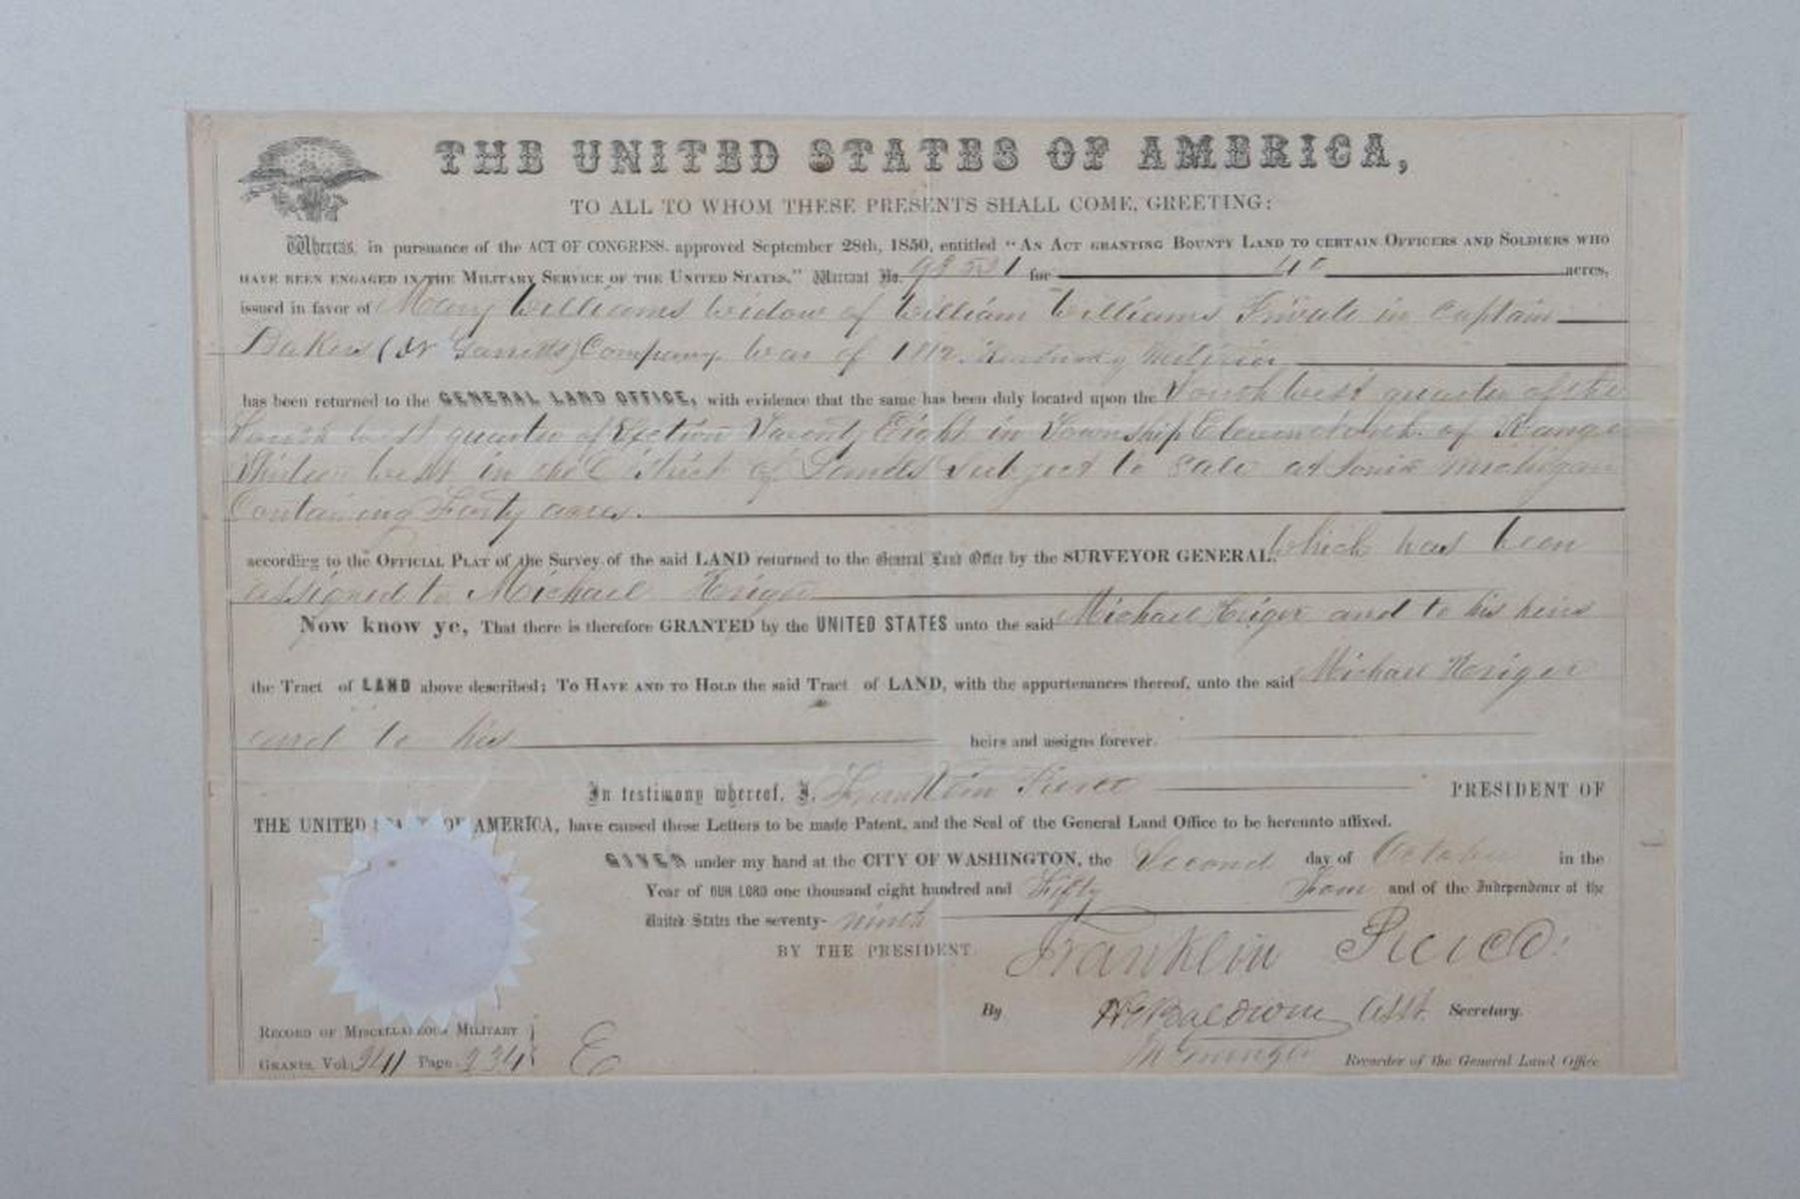 THE UNITED STATES OF AMERICA,
TO ALL TO WHOM THESE PRESENTS SHALL COME, GREETING:
Whereas, in pursuance of the ACT OF CONGRESS, approved September 28th, 1850, entitled "AN ACT GRANTING BOUNTY LAND TO CERTAIN OFFICERS AND SOLDIERS WHO
HAVE BEEN ENGAGED IN THE MILITARY SERVICE OF THE UNITED STATES," Warrant No. for 40 acres,
issued in favor of Mary Williams widow of William Williams Private in Captain
Bakers Company War of 1812. Kentucky Militia
has been returned to the GENERAL LAND OFFICE, with evidence that the same has been duly located upon the South West quarter of the
South West quarter of Section Twenty Eight in Township Eleven North of Range
Thirteen West in the District of Lands Subject to Sale at Ionia Michigan
Containing Forty acres.
according to the OFFICIAL PLAT of the Survey of the said LAND returned to the General Land Office by the SURVEYOR GENERAL, Which has been
assigned to Michael
Now know ye, That there is therefore GRANTED by the UNITED STATES unto the said Michael and to his heirs
the Tract of LAND above described; TO HAVE AND TO HOLD the said Tract of LAND, with the appurtenances thereof, unto the said Michael
and to his heirs and assigns forever.
In testimony whereof, I, Franklin Pierce PRESIDENT OF
THE UNITED OF AMERICA, have caused these Letters to be made Patent, and the Seal of the General Land Office to be hereunto affixed.
GIVEN under my hand at the CITY OF WASHINGTON, the Second day of October in the
Year of OUR LORD one thousand eight hundred and Fifty Four and of the Independence of the
United States the seventy-ninth
BY THE PRESIDENT Franklin Pierce
By Baldwin Asst. Secretary.
RECORD OF MISCELLANEOUS MILITARY
GRANTS, Vol. 241 Page 234 E Recorder of the General Land Office